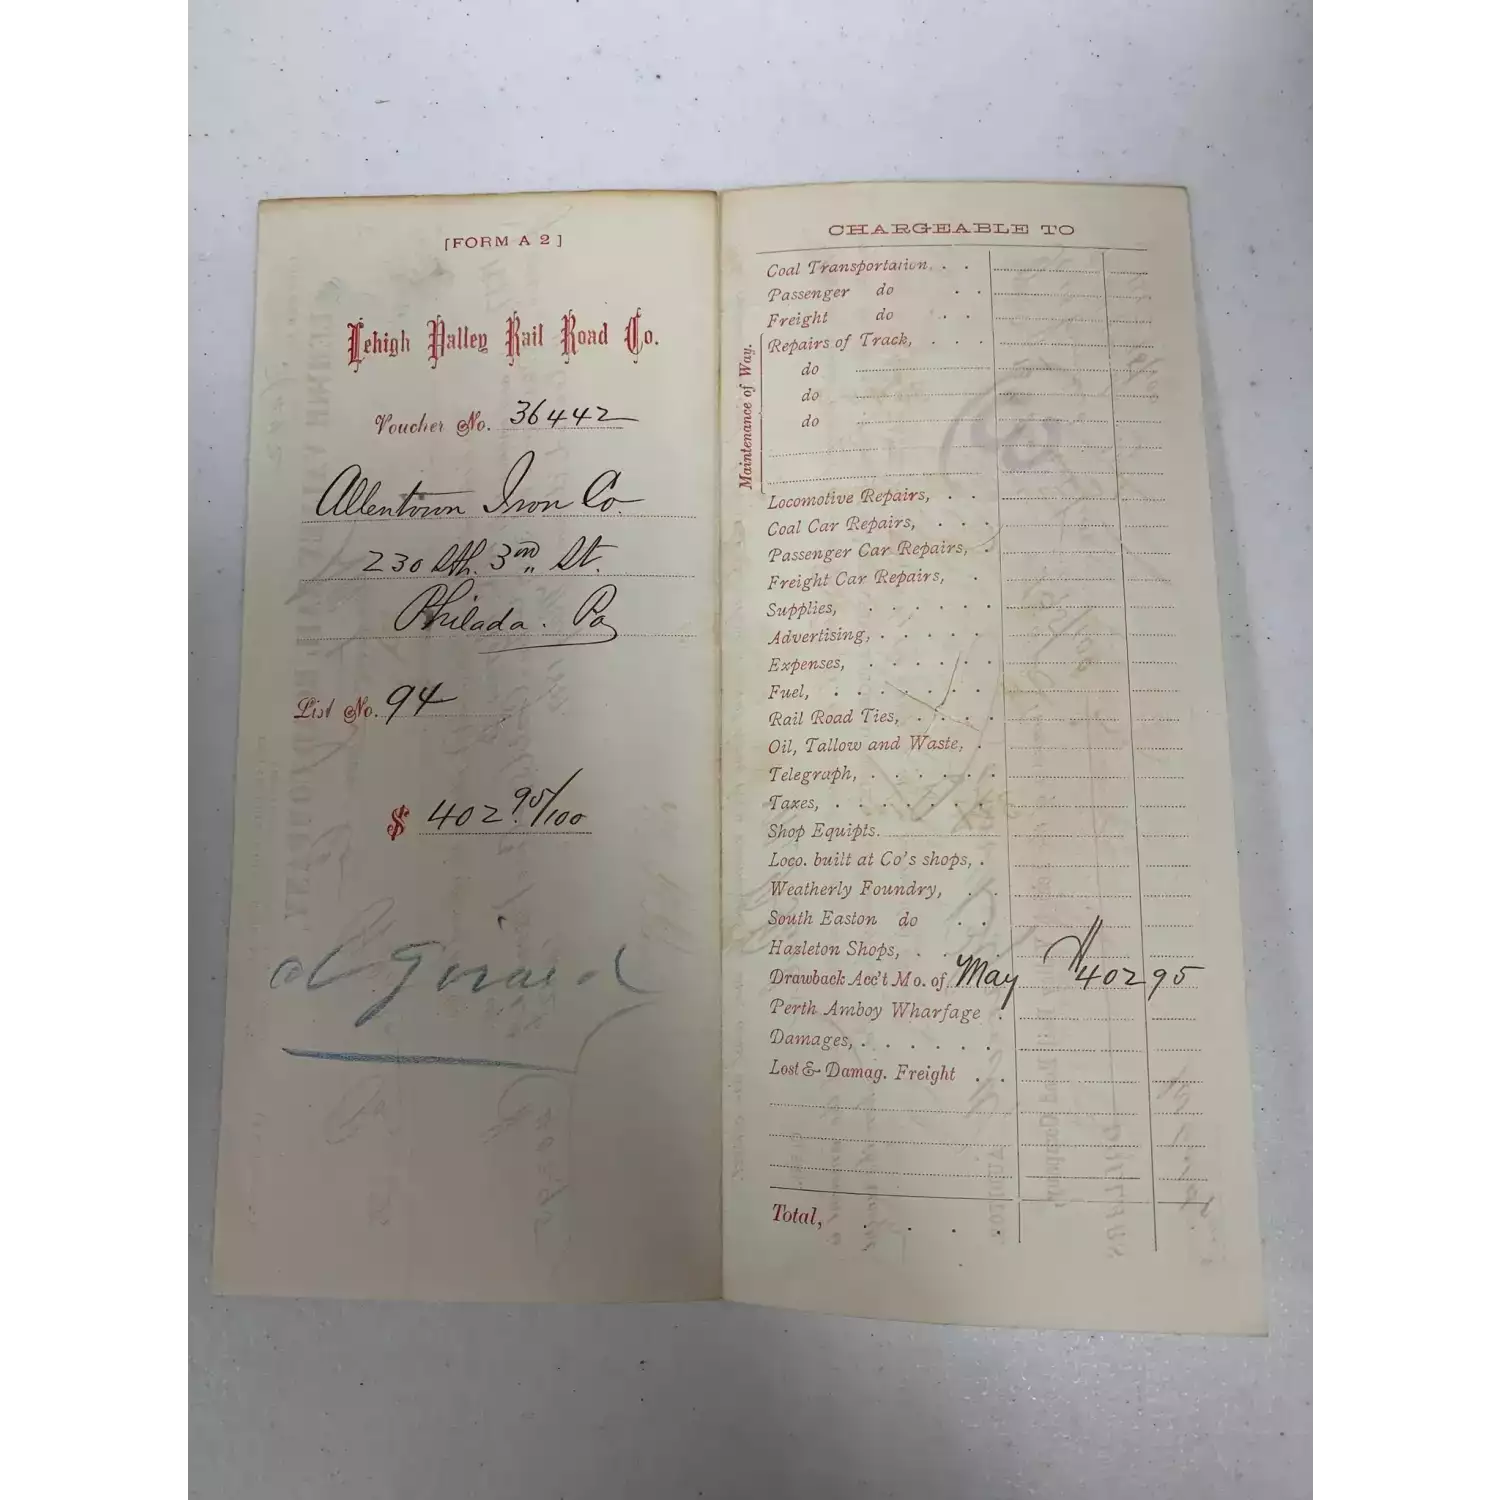 [FORM A 2]
Lehigh Valley Rail Road Co.
Voucher No. 36442
Allentown Iron Co.
230 Sth. 3rd St.
Philada. Pa
List No. 94
$ 402 95/100
Girard
CHARGEABLE TO
Coal Transportation . .
Passenger do . .
Freight do . .
Maintenance of Way.
Repairs of Track, . . .
do
do
do
Locomotive Repairs, . .
Coal Car Repairs, . . .
Passenger Car Repairs, .
Freight Car Repairs, .
Supplies, . . . . .
Advertising, . . . . .
Expenses, . . . . .
Fuel, . . . . . .
Rail Road Ties, . . . .
Oil, Tallow and Waste, .
Telegraph, . . . . .
Taxes, . . . . . .
Shop Equipts.
Loco. built at Co's shops, .
Weatherly Foundry, . .
South Easton do . .
Hazleton Shops, . . .
Drawback Acc't Mo. of May $402 95
Perth Amboy Wharfage .
Damages, . . . . .
Lost & Damag. Freight . .
Total, . . . .